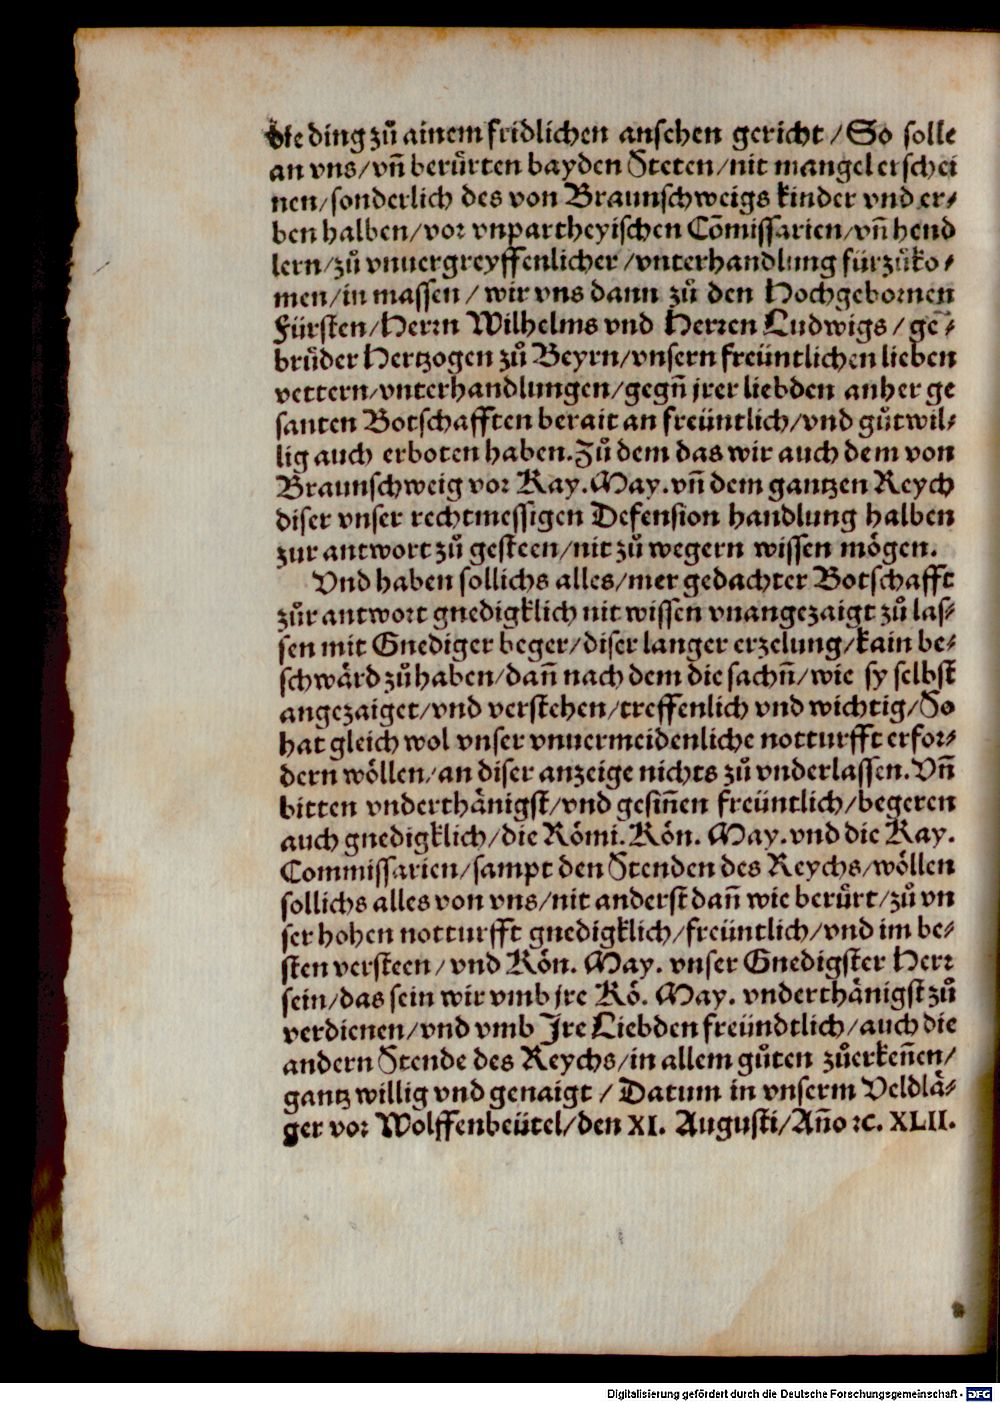 die ding zů ainem fridlichen ansehen gericht / So solle
an vns / vñ berürten bayden Steten / nit mangel erschei
nen / sonderlich des von Braunschweigs kinder vnd er⸗
ben halben / vor vnpartheyischen Cõmissarien / vñ hend
lern / zů vnuergreyffenlicher / vnterhandlung fürzůko⸗
men / in massen / wir vns dann zů den Hochgebornen
Fürsten / Herrn Wilhelms vnd Herren Ludwigs / ge⸗
brůder Hertzogen zů Beyrn / vnsern freüntlichen lieben
vettern / vnterhandlungen / gegñ jrer liebden anher ge
santen Botschafften berait an freüntlich / vnd gůtwil⸗
lig auch erboten haben. Zů dem das wir auch dem von
Braunschweig vor Kay. May. vñ dem gantzen Reych
diser vnser rechtmessigen Defension handlung halben
zur antwort zů gesteen / nit zů wegern wissen mögen.
Vnd haben sollichs alles / mer gedachter Botschafft
zůr antwort gnedigklich nit wissen vnangezaigt zů las⸗
sen mit Gnediger beger / diser langer erzelung / kain be⸗
schwärd zů haben / dañ nach dem die sachñ / wie sy selbst
angezaiget / vnd verstehen / treffenlich vnd wichtig / So
hat gleich wol vnser vnuermeidenliche notturfft erfor⸗
dern wöllen / an diser anzeige nichts zů vnderlassen. Vñ
bitten vnderthänigst / vnd gesiñen freüntlich / begeren
auch gnedigklich / die Römi. Kön. May. vnd die Kay.
Commissarien / sampt den Stenden des Reychs / wöllen
sollichs alles von vns / nit anderst dañ wie berürt / zů vn
ser hohen notturfft gnedigklich / freüntlich / vnd im be⸗
sten versteen / vnd Kön. May. vnser Gnedigster Herr
sein / das sein wir vmb jre Kö. May. vnderthänigst zů
verdienen / vnd vmb Jre Liebden freündtlich / auch die
andern Stende des Reychs / in allem gůten zůerkeñen /
gantz willig vnd genaigt / Datum in vnserm Veldlä⸗
ger vor Wolffenbeütel / den XI. Augusti / Año ꝛc. XLII.
Digitalisierung gefördert durch die Deutsche Forschungsgemeinschaft - DFG